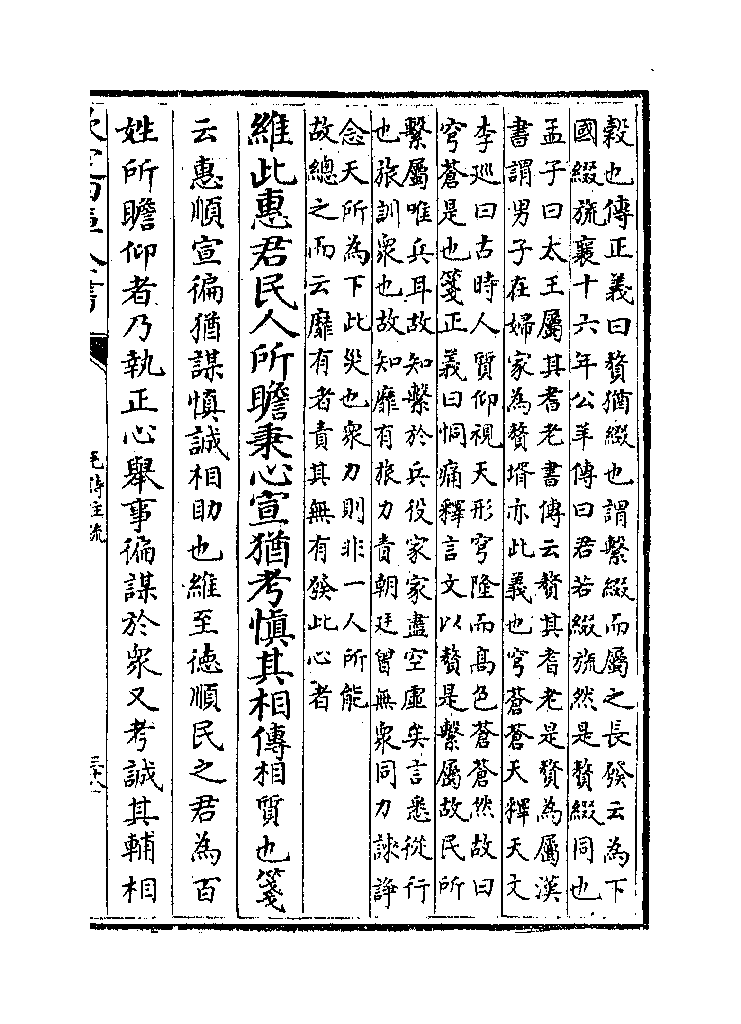 穀也傳正義曰贅猶綴也謂繫綴而屬之長發云為下
國綴旒襄十六年公羊傳曰君若綴旒然是贅綴同也
孟子曰太王屬其耆老書傳云贅其耆老是贅為屬漢
書謂男子在婦家為贅壻亦此義也穹蒼蒼天釋天文
李廵曰古時人質仰視天形穹隆而髙色蒼蒼然故曰
穹蒼是也箋正義曰恫痛釋言文以贅是繫屬故民所
繫屬唯兵耳故知繫於兵役家家盡空虛矣言悉從行
也旅訓衆也故知靡有旅力責朝廷曾無衆同力諫諍
念天所為下此災也衆力則非一人所能
故總之而云靡有者責其無有發此心者
維此惠君民人所瞻秉心宣猶考慎其相傳相質也箋
云惠順宣徧猶謀慎誠相助也維至徳順民之君為百
姓所瞻仰者乃執正心舉事徧謀於衆又考誠其輔相
欽定四庫全書
毛詩注疏